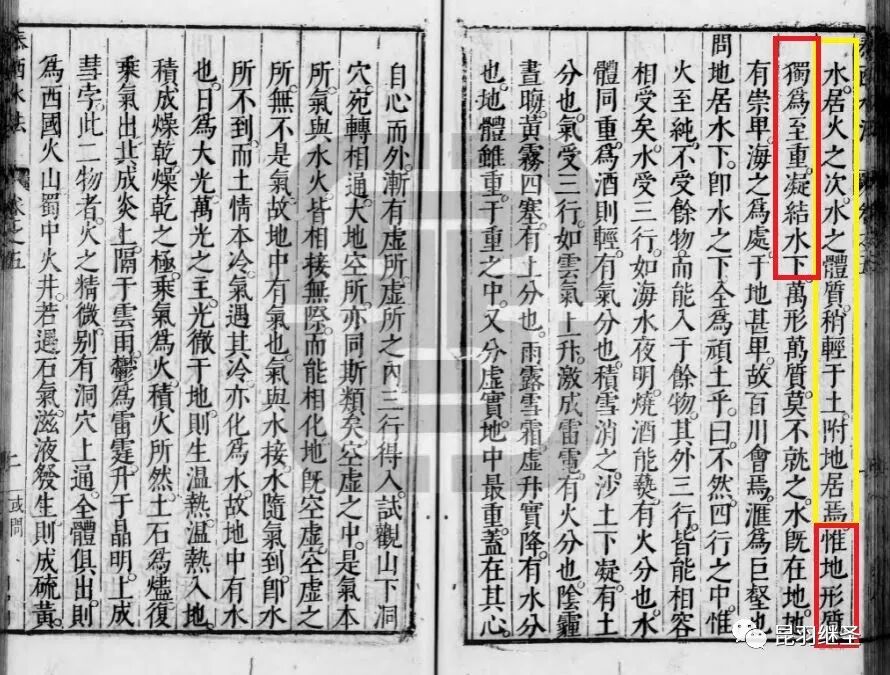 泰西水法
水居火之次水之體質稍輕于土附地居焉惟地形質
獨為至重凝結水下萬形萬質莫不就之水既在地地
有崇卑海之為處于地甚卑故百川會焉滙為巨壑也
問地居水下即水之下全為頑土乎曰不然四行之中惟
火至純不受餘物而能入于餘物其外三行皆能相容
相受矣水受三行如海水夜明燒酒能爇有火分也水
體同重為酒則輕有氣分也積雪消之沙土下凝有土
分也氣受三行如雲氣上升激成雷電有火分也陰霾
晝晦黃霧四塞有土分也雨露雪霜虛升實降有水分
也地體雖重于重之中又分虛實地中最重蓋在其心
自心而外漸有虛所虛所之內三行得入試觀山下洞
穴宛轉相通大地空所亦同斯類矣空虛之中是氣本
所氣與水火皆相接無際而能相化地既空虛空虛之
所無不是氣故地中有氣也氣與水接水隨氣到即水
所不到而土情本冷氣遇其冷亦化為水故地中有水
也日為大光萬光之主光徹于地則生溫熱溫熱入地
積成燥乾燥乾之極乘氣為火積火所然土石為燼復
乘氣出共成炎上隔于雲雨鬱為雷霆升于晶明上成
彗孛此二物者火之精微別有洞穴上通全體俱出則
為西國火山蜀中火井若遇石氣滋液發生則成硫黃
泰西水法
二
或問
昆羽继圣